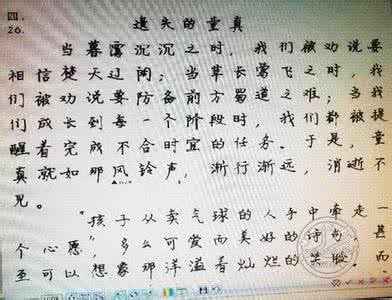 四.
26. 遗失的童真
当暮霭沉沉之时，我们被劝说要
相信楚天辽阔；当草长莺飞之时，我
们被劝说要防备前方蜀道之难；当我
们成长到每一个阶段时，我们都被提
醒着完成不合时宜的任务。于是，童
真就如那风铃声，渐行渐远，消逝不
见。
“孩子从卖气球的人手中牵走一
个心愿”，多么可爱而美好的诗句，甚而
至可以想象那洋溢着灿烂的笑脸。